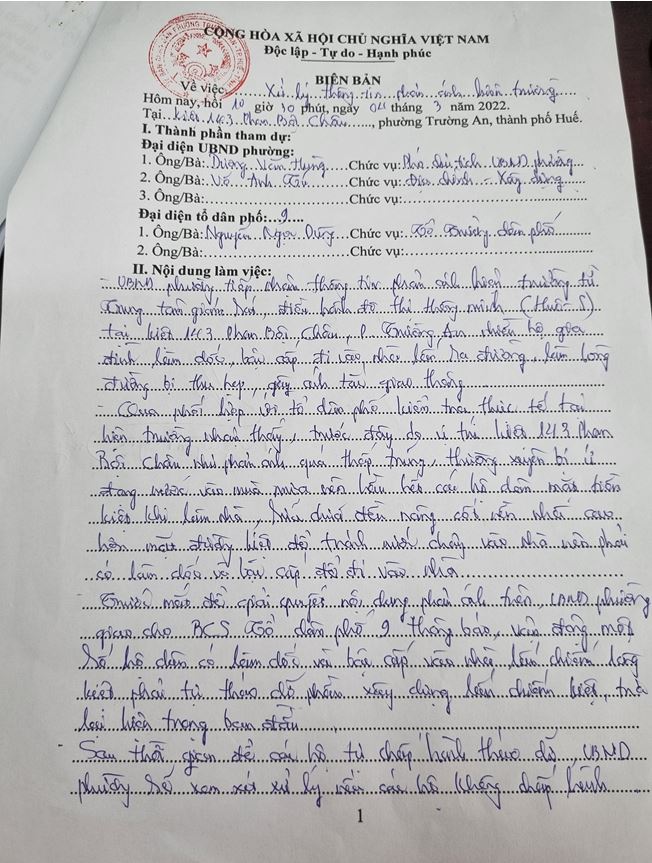 CỘNG HÒA XÃ HỘI CHỦ NGHĨA VIỆT NAM
Độc lập - Tự do - Hạnh phúc
BIÊN BẢN
Về việc: Xử lý thông tin phản ánh hiện trường
Hôm nay, hồi 10 giờ 30 phút, ngày 04 tháng 3 năm 2022.
Tại Kiệt 143 Phan Bội Châu, phường Trường An, thành phố Huế.
I. Thành phần tham dự:
Đại diện UBND phường:
1. Ông/Bà: Dương Văn Chức vụ: Phó chủ tịch UBND phường
2. Ông/Bà: Võ Anh Chức vụ: Địa chính - Xây dựng
3. Ông/Bà: Chức vụ:
Đại diện tổ dân phố: 9
1. Ông/Bà: Nguyễn Ngọc Dũng Chức vụ: Tổ trưởng dân phố
2. Ông/Bà: Chức vụ:
II. Nội dung làm việc:
- UBND phường tiếp nhận thông tin phản ánh hiện trường từ
Trung tâm giám sát điều hành đô thị thông minh (Huế-S)
tại kiệt 143 Phan Bội Châu, P Trường An nhiều hộ gia
đình làm dốc, bậc cấp đi vào nhà lấn ra đường, làm lòng
đường bị thu hẹp, gây giao thông
- Qua phối hợp với tổ dân phố kiểm tra thực tế tại
hiện trường nhận thấy, trước đây do vị trí kiệt 143 Phan
Bội Châu như phản ánh quá thấp trũng, thường xuyên bị ứ
đọng nước vào mùa mưa nên hầu hết các hộ dân mặt tiền
kiệt khi làm nhà, sửa chữa đều nâng cốt nền nhà cao
hơn mặt đường kiệt để tránh nước chảy vào nhà nên phải
có làm dốc và bậc cấp để đi vào nhà
Trước mắt để giải quyết nội dung phản ánh trên, UBND phường
giao cho BCS Tổ dân phố 9 thông báo, vận động một
số hộ dân có làm dốc và bậc cấp vào nhà lấn chiếm lòng
kiệt phải tự tháo dỡ phần xây dựng lấn chiếm kiệt, trả
lại hiện trạng ban đầu
Sau thời gian để các hộ tự chấp hành tháo dỡ, UBND
phường sẽ xem xét xử lý nếu các hộ không chấp hành
1